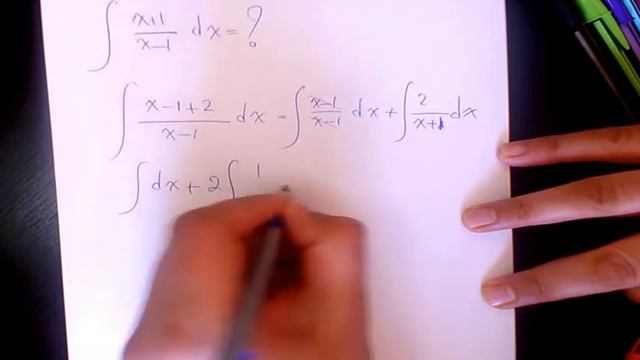 ∫ x+1/x-1 dx = ?
∫ x-1+2/x-1 dx = ∫ x-1/x-1 dx + ∫ 2/x+1 dx
∫ dx + 2 ∫ 1